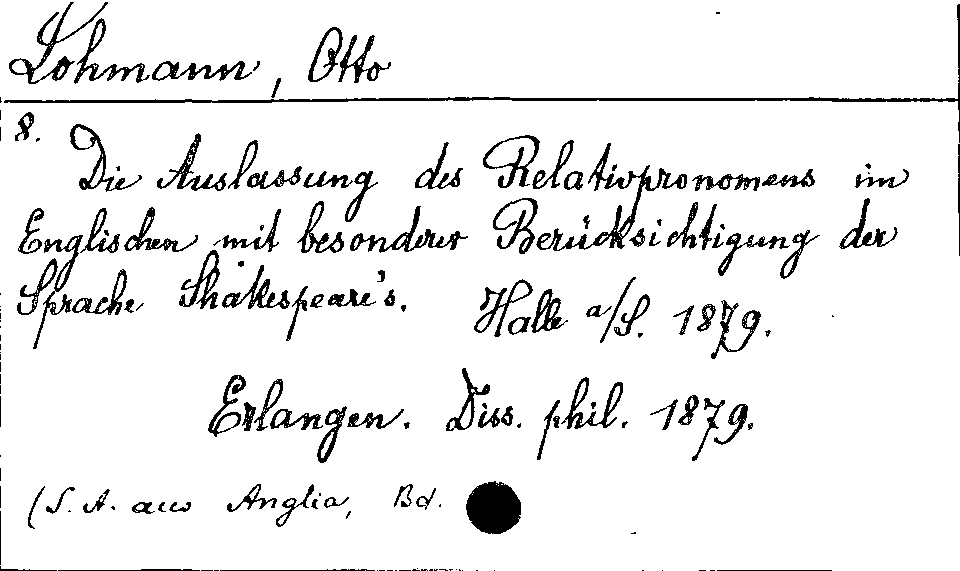 Lohmann, Otto
8.
Die Auslassung des Relativpronomens im
Englischen mit besonderer Berücksichtigung der
Sprache Shakespeare's. Halle a/S. 1879.
Erlangen. Diss. phil. 1879.
(S. A. aus Anglia, Bd.